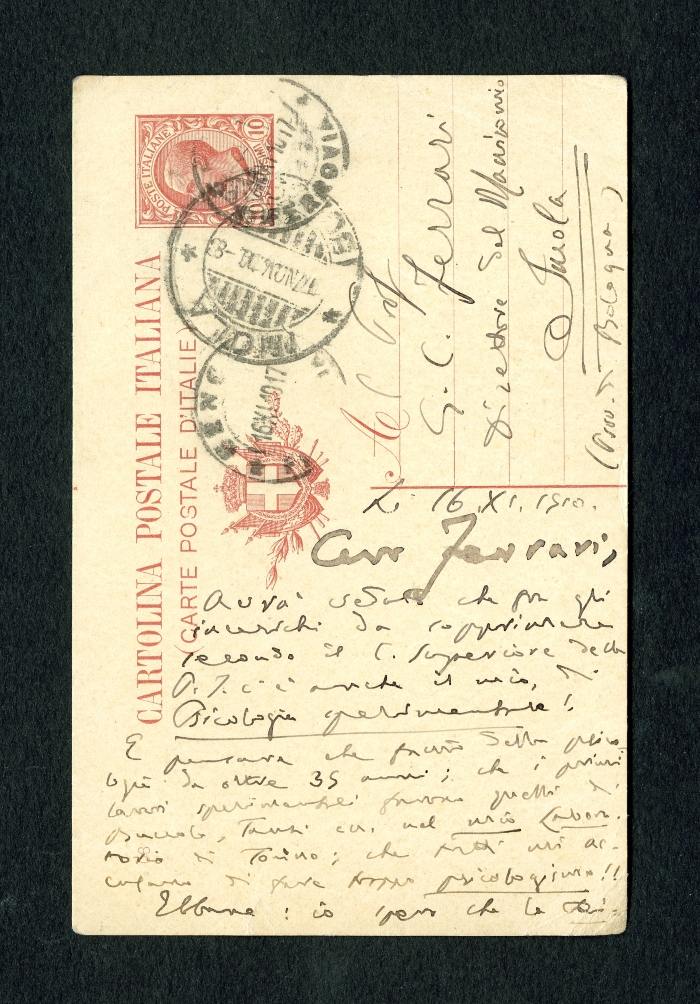 POSTE ITALIANE
10
CARTOLINA POSTALE ITALIANA
(CARTE POSTALE D'ITALIE)
IMOLA
FERROVIA
16 XI 1910 17
Al Prof
G. C. Ferrari
Direttore del Manicomio
Imola
(Prov. di Bologna)
Lì 16. XI. 1910.
Caro Ferrari,
Avrà veduto che fra gli
incarichi da sopprimere
secondo il C. Superiore della
P. I. c'è anche il mio, di
Psicologia sperimentale!
E pensare che faccio della psico
logia da oltre 35 anni; che i primi
lavori sperimentali furono quelli di
Buccola, Tanzi ecc. nel mio Labora-
torio di Torino; che tutti mi ac-
cusano di fare troppo psicologismo!!
Ebbene: io spero che la